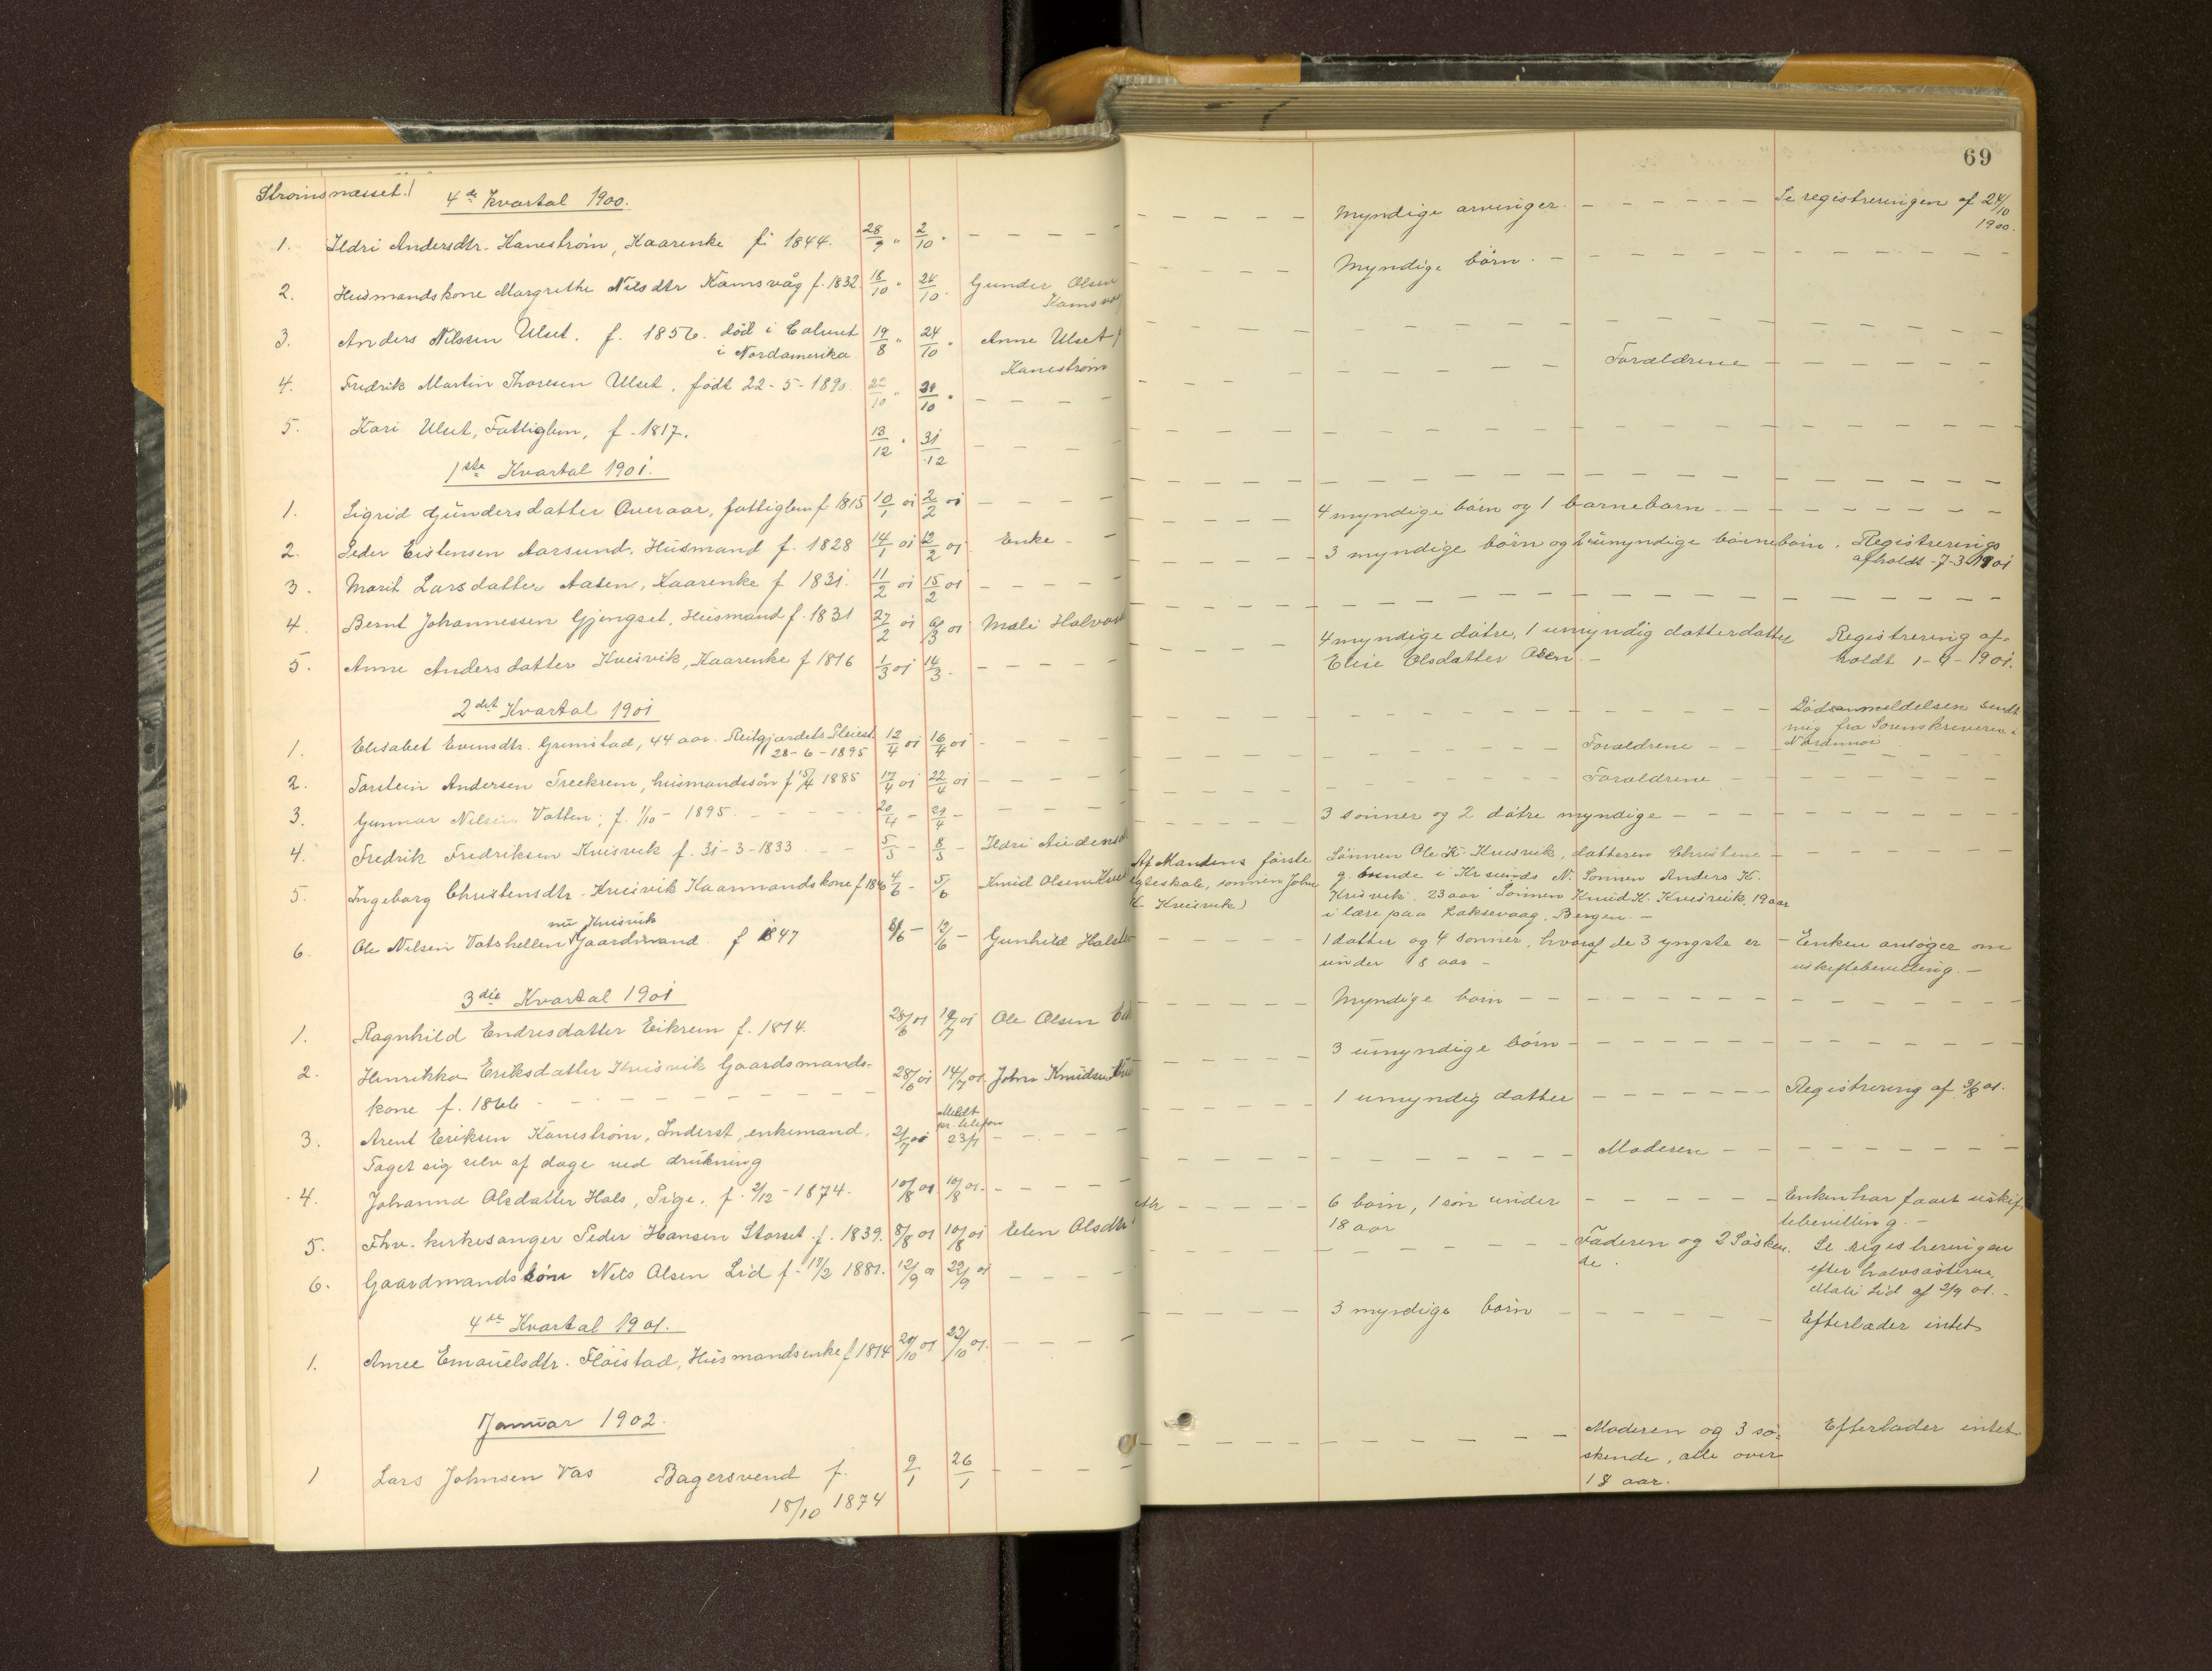 Stromsnæsset.
4de Kvartal 1900.
1. Ildri Andersdtr. Kanestrøm, Kaarenke f. 1844. 28/9 " 2/10 "
2. Husmandskone Margrethe Nilsdtr Kamsvåg f. 1832. 18/10 " 24/10. Gunder Olsen
3. Anders Nilssen Ulset. f. 1856. død i Calmet 19/8 " 24/10 " Anne Ulset
i Nordamerika
Kanestrøm
4. Fredrik Martin Thoresen Ulset, født 22-5-1890. 22/10 " 31/10 "
5. Kari Ulset, Fattiglem, f. 1817. 13/12 " 31/12
1ste Kvartal 1901.
1. Sigrid Gundersdatter Øveraar, fattiglem f 1815 10/1 01 2/2 01
2. Peder Eistensen Aarsund, Husmand f. 1828 14/1 01 12/2 01 Enke
3. Marit Larsdatter Aasen, Kaarenke f 1831. 11/2 01 15/2 01
4. Bernt Johannessen Gjengset, Husmand f. 1831 27/2 01 6/3 01 Mali
5. Anne Andersdatter Kvisvik, Kaarenke f 1816 1/3 01 14/3
2det Kvartal 1901
1. Elisabet Evensdtr. Grimstad, 44 aar. Reitgjærdets Pleiest. 12/4 01 16/4 01
28-6-1895
2. Torstein Andersen Freekrem, husmandssøn f 15/4 1885 17/4 01 22/4 01
3. Gunnar Nilsen Vatten; f. 1/10 - 1895. 20/4 - 29/4 -
4. Fredrik Fredriksen Kvisvik f. 31-3-1833 5/5 - 8/5 - Ildri
5. Ingeborg Christensdtr. Kvisvik Kaarmandskone f 1846 4/6 - 5/6 Knud Olsen
nu Kvisvik
6. Ole Nilsen Vatshellen Gaardmand. f 1847 8/6 - 12/6 - Gunhild
3die Kvartal 1901
1. Ragnhild Endresdatter Eikrem f. 1814. 28/6 01 14/7 01 Ole Olsen
2. Henrikka Eriksdatter Kvisvik Gaardsmands- 28/6 01 14/7 01. John Knudsen
kone f. 1866
Meldt
pr. telefon
3. Arent Eriksen Kanestrøm, Inderst, enkemand. 21/7 01 23/7
Taget sig selv af dage ved drukning
4. Johanna Olsdatter Hals, Pige. f. 2/12 - 1874. 10/8 01 10/8 01.
5. Fhv. kirkesanger Peder Hansen Storset f. 1839. 8/8 01 10/8 01 Elen Olsdtr
6. Gaardmandssøn Nils Olsen Lid f. 17/2 1881. 12/9 01 22/9 01
4de Kvartal 1901.
1. Anne Emanuelsdtr. Fløistad, Husmandsenke f 1814 20/10 01 22/10 01.
Januar 1902.
1 Lars Johnsen Vas Bagersvend f. 9/1 26/1
18/10 1874
69
Myndige arvinger. Se registreringen af 24/10
1900.
Myndige børn.
Forældrene
4 myndige børn og 1 barnebarn
3 myndige børn og 2 umyndige børnebørn. Registrering
afholdt 7-3-1901
4 myndige døtre, 1 umyndig datterdatter Registrering af-
Elise Olsdatter holdt 1-4-1901.
Dødsanmeldelsen sendt
mig fra Sorenskriveren i
Forældrene Nordmør
Forældrene
3 sønner og 2 døtre myndige
Af Mandens første Sønnen Ole K. Kvisvik, datteren Christine
egteskab, sønnen John g. boende i Krsunds N. Sønnen Anders K.
K. Kvisvik) Kvisvik. 23 aar Sønnen Knud K. Kvisvik, 19 aar
i lære paa Laksevaag, Bergen.
1 datter og 4 sønner, hvoraf de 3 yngste er Enken ansøger om
under 18 aar uskiftebevilling.
Myndige børn
3 umyndige børn
1 umyndig datter Registrering af 3/8 01.
Moderen
6 børn, 1 søn under Enken har faaet uskif-
18 aar tebevilling.
Faderen og 2 Søsken- Se registreringen
de. efter halvsøsteren
Mali Lid af 2/9 01.
3 myndige børn Efterlader intet
Moderen og 3 sø- Efterlader intet.
skende, alle over
18 aar.